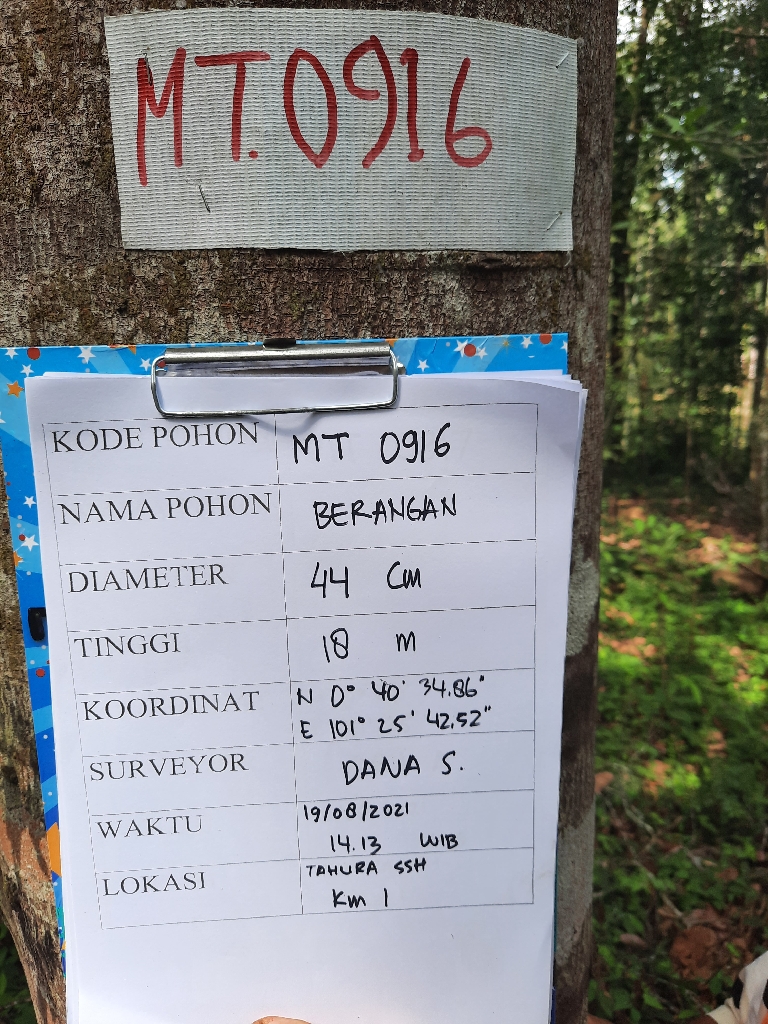 MT.0916
KODE POHON MT 0916
NAMA POHON BERANGAN
DIAMETER 44 Cm
TINGGI 18 m
KOORDINAT N 0° 40' 34.86"
E 101° 25' 42.52"
SURVEYOR DANA S.
WAKTU 19/08/2021
14.13 WIB
LOKASI TAHURA SSH
Km 1